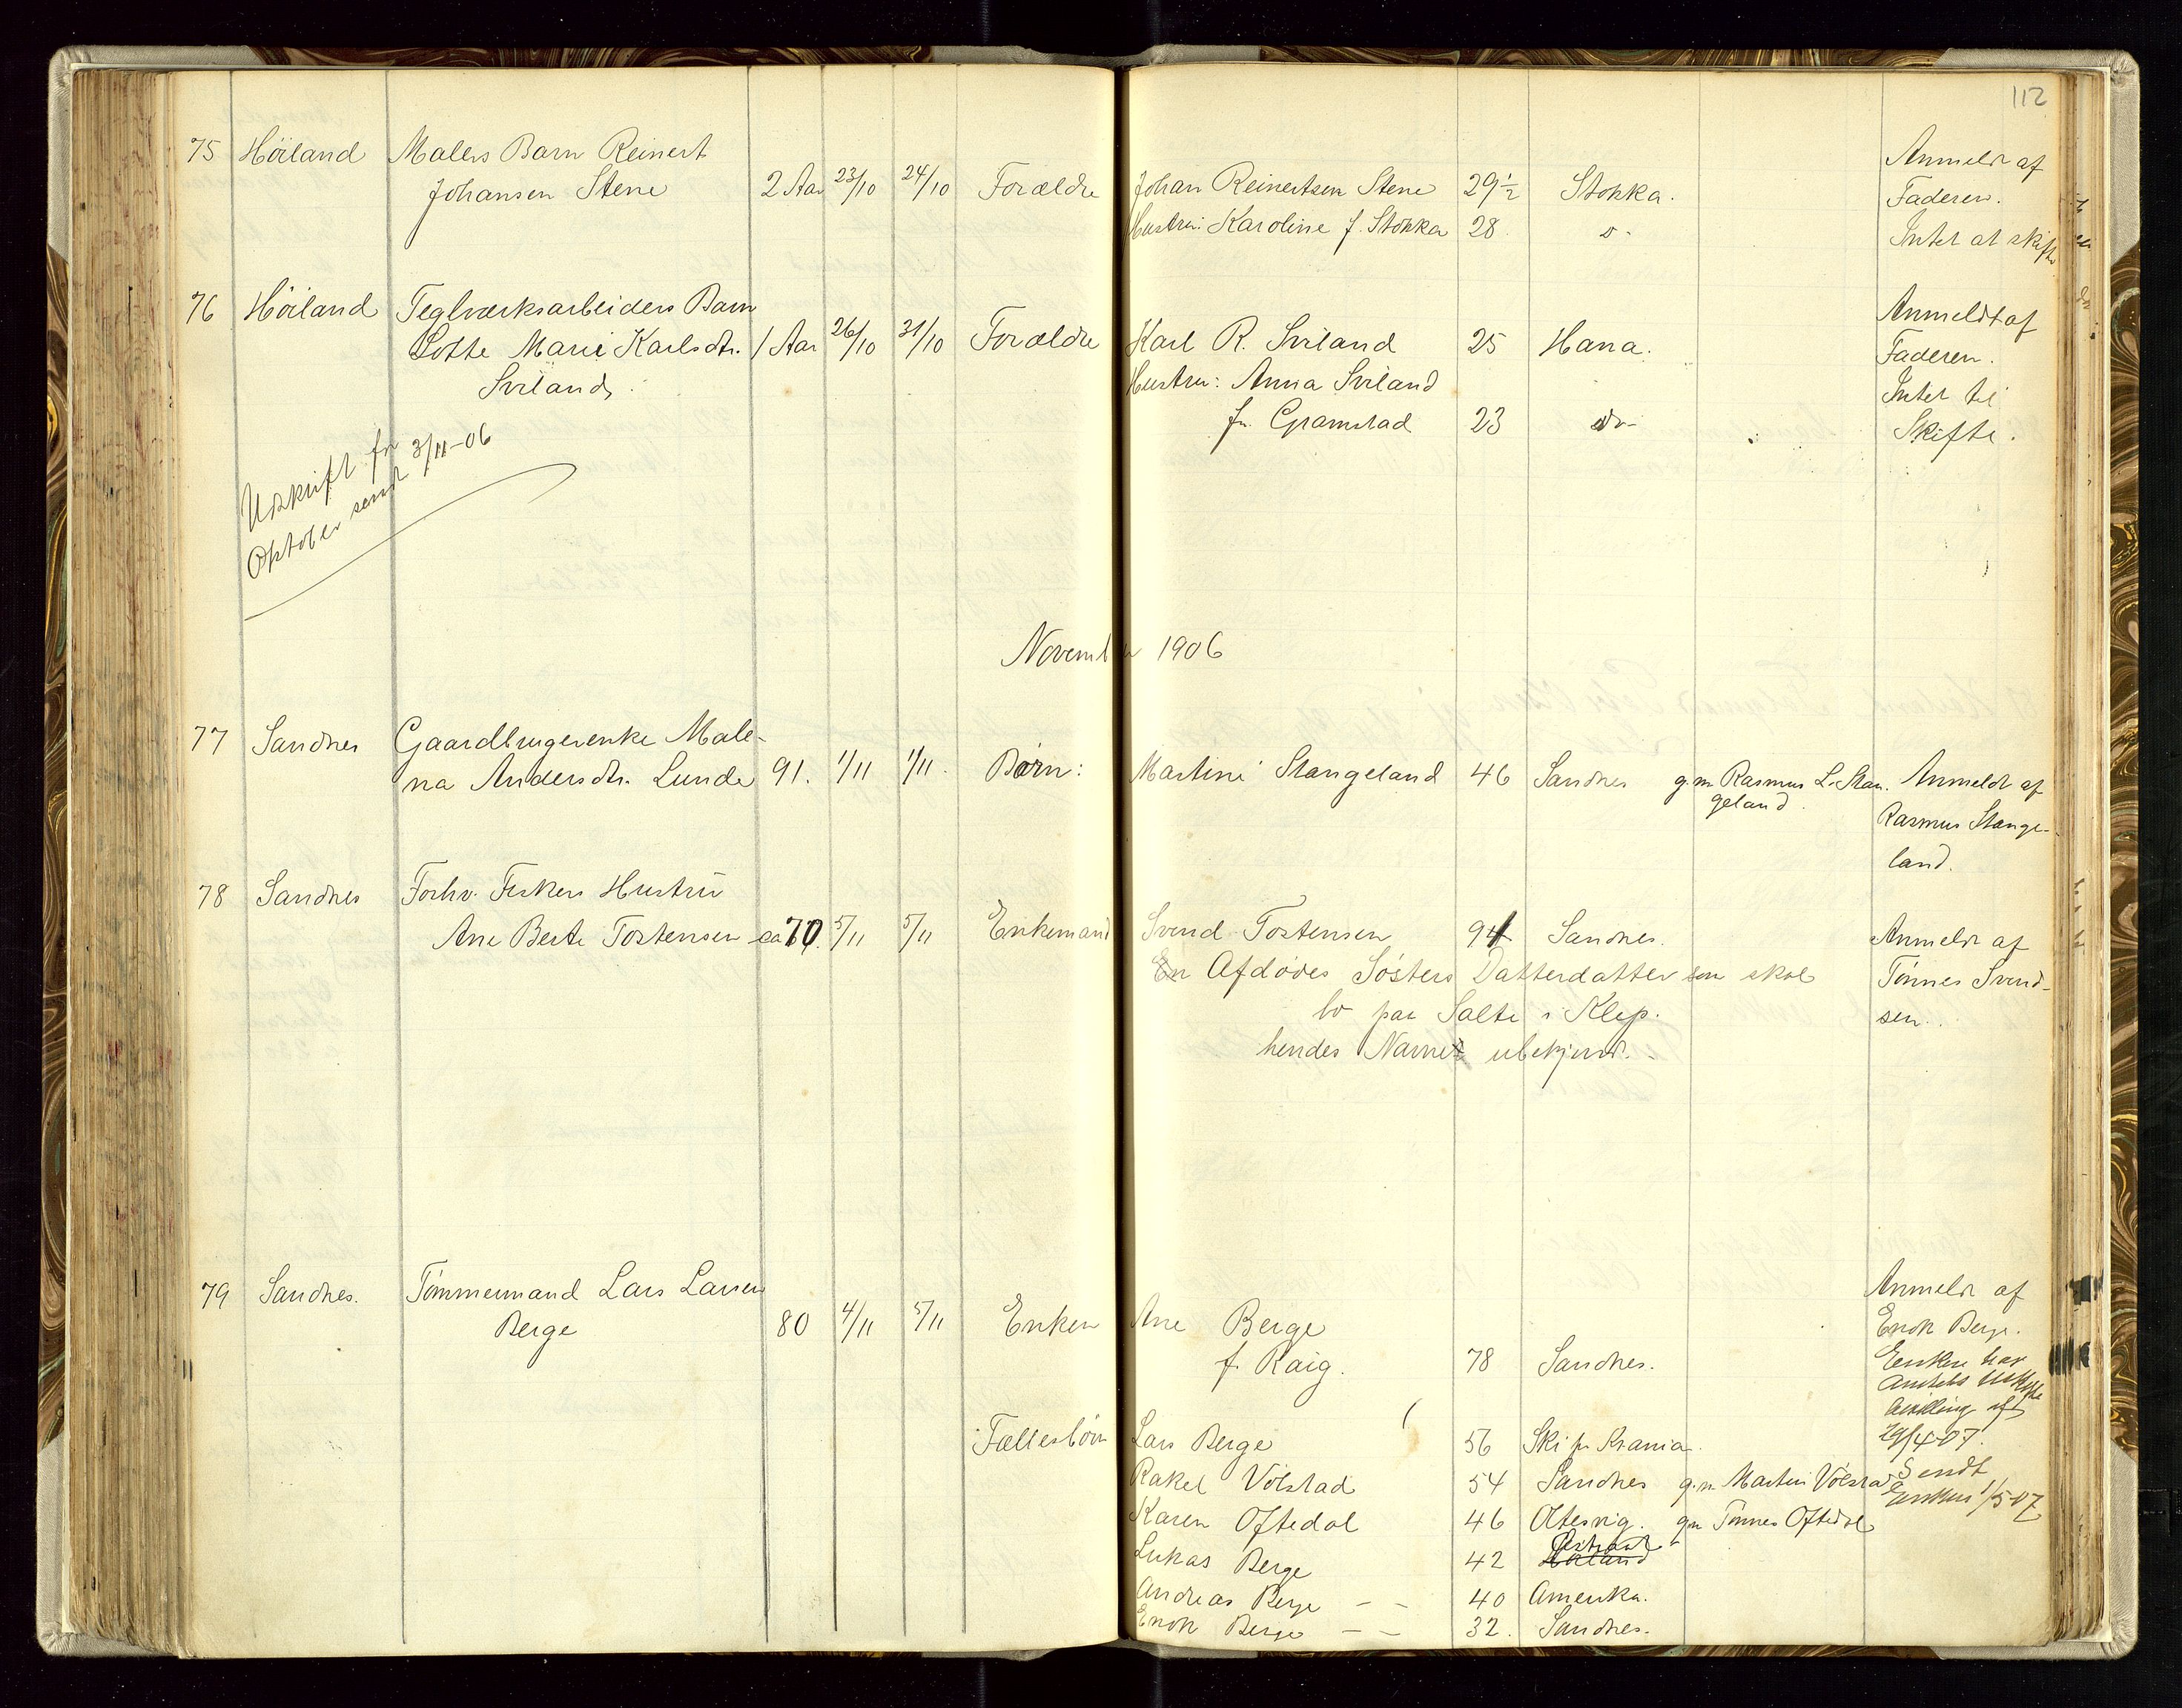 112
75 Höiland Malers Barn Reinert
Johansen Stene 2 Aar 23/10 24/10 Forældre Johan Reinertsen Stene 29½ Stokka. Anmeldt af
Faderen.
Hustru: Karoline f. Stokka 28 Intet at skifte
76 Höiland Teglværksarbeiders Barn
Lotte Marie Karlsdtr. 1 Aar 26/10 31/10 Forældre Karl R. Sviland 25 Hana. Anmeldt af
Faderen.
Sviland. Hustru: Anna Sviland Intet til
f. Gramstad 23 do- Skifte.
Udskrift for
Oktober sendt 3/11-06
November 1906
77 Sandnes Gaardbrugerenke Male-
na Andersdtr. Lunde 91. 1/11 1/11. Børn: Martine Stangeland 46 Sandnes g.m. Rasmus L. Stan- Anmeldt af
geland. Rasmus Stange-
land.
78 Sandnes Forhv. Fiskers Hustru
Ane Berte Tostensen ca 70. 5/11 5/11 Enkemand Svend Tostensen Sandnes. Anmeldt af
En Afdødes Søsters Datterdatter som skal Tönnes Svend-
bo paa Salte i Klep. sen.
hendes Navne ubekjendt.
79 Sandnes. Tömmermand Lars Larsen Anmeldt af
Berge 80 4/11 5/11 Enken Ane Berge Enok Berge.
f. Raig. 78 Sandnes. Enken har
Amtets Uskifte
bevilling af
29/4-07.
Sendt
Enken 1/5-07
Fællesbörn Lars Berge 56 Ski pr Krania.
Rakel Völstad 54 Sandnes g.m. Martin Völstad
Karen Oftedal 46 Oltesvig. gm Tönnes Oftedal
Lukas Berge 42 Höiland
Andreas Berge - - 40 Amerika.
Enok Berge - - 32. Sandnes.